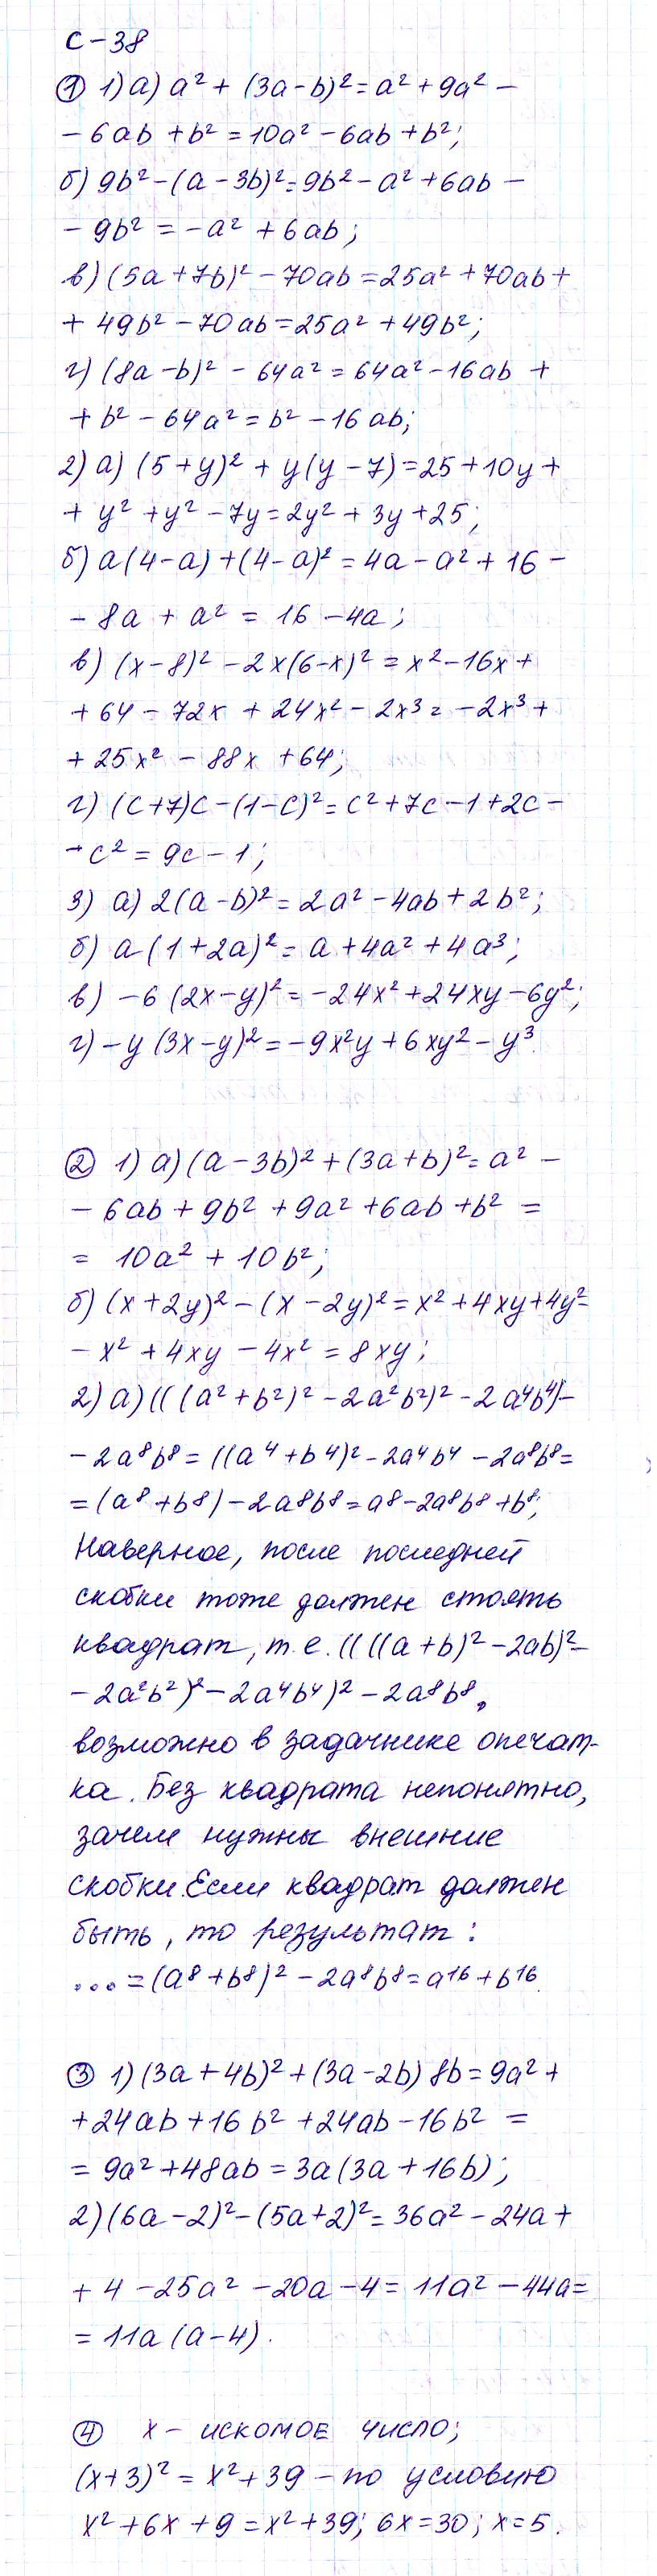 С-38
① 1) а) a² + (3a - b)² = a² + 9a² -
- 6ab + b² = 10a² - 6ab + b²;
б) 9b² - (a - 3b)² = 9b² - a² + 6ab -
- 9b² = -a² + 6ab;
в) (5a + 7b)² - 70ab = 25a² + 70ab +
+ 49b² - 70ab = 25a² + 49b²;
г) (8a - b)² - 64a² = 64a² - 16ab +
+ b² - 64a² = b² - 16ab;
2) а) (5 + y)² + y(y - 7) = 25 + 10y +
+ y² + y² - 7y = 2y² + 3y + 25;
б) a(4 - a) + (4 - a)² = 4a - a² + 16 -
- 8a + a² = 16 - 4a;
в) (x - 8)² - 2x(6 - x)² = x² - 16x +
+ 64 - 72x + 24x² - 2x³ = -2x³ +
+ 25x² - 88x + 64;
г) (c + 7)c - (1 - c)² = c² + 7c - 1 + 2c -
- c² = 9c - 1;
3) а) 2(a - b)² = 2a² - 4ab + 2b²;
б) a(1 + 2a)² = a + 4a² + 4a³;
в) -6(2x - y)² = -24x² + 24xy - 6y²;
г) -y(3x - y)² = -9x²y + 6xy² - y³.
② 1) а) (a - 3b)² + (3a + b)² = a² -
- 6ab + 9b² + 9a² + 6ab + b² =
= 10a² + 10b²;
б) (x + 2y)² - (x - 2y)² = x² + 4xy + 4y² -
- x² + 4xy - 4x² = 8xy;
2) а) (((a² + b²)² - 2a²b²)² - 2a⁴b⁴) -
- 2a⁸b⁸ = ((a⁴ + b⁴)² - 2a⁴b⁴ - 2a⁸b⁸ =
= (a⁸ + b⁸) - 2a⁸b⁸ = a⁸ - 2a⁸b⁸ + b⁸;
Наверное, после последней
скобки тоже должен стоять
квадрат, т.е. ((((a + b)² - 2ab)² -
- 2a²b²)² - 2a⁴b⁴)² - 2a⁸b⁸,
возможно в задачнике опечат-
ка. Без квадрата непонятно,
зачем нужны внешние
скобки. Если квадрат должен
быть, то результат:
... = (a⁸ + b⁸)² - 2a⁸b⁸ = a¹⁶ + b¹⁶.
③ 1) (3a + 4b)² + (3a - 2b) 8b = 9a² +
+ 24ab + 16b² + 24ab - 16b² =
= 9a² + 48ab = 3a(3a + 16b);
2) (6a - 2)² - (5a + 2)² = 36a² - 24a +
+ 4 - 25a² - 20a - 4 = 11a² - 44a =
= 11a(a - 4).
④ x - искомое число;
(x + 3)² = x² + 39 - по условию
x² + 6x + 9 = x² + 39; 6x = 30; x = 5.